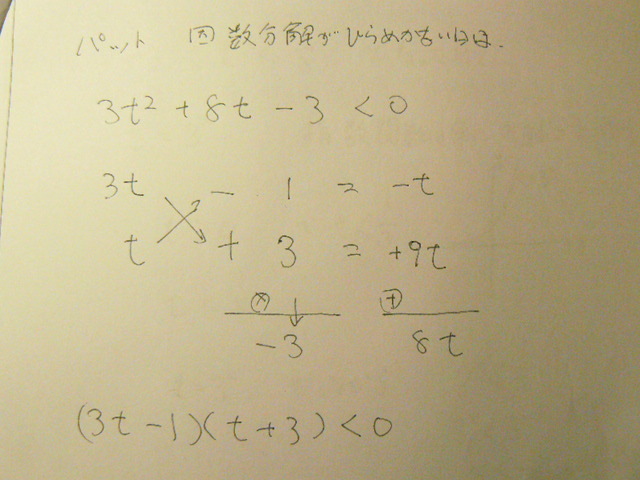 パット 因数分解がひらめかないときは.
3t² + 8t - 3 < 0
3t - 1 = -t
t + 3 = +9t
⊗ ↓ ⊕
-3 8t
(3t-1)(t+3)<0